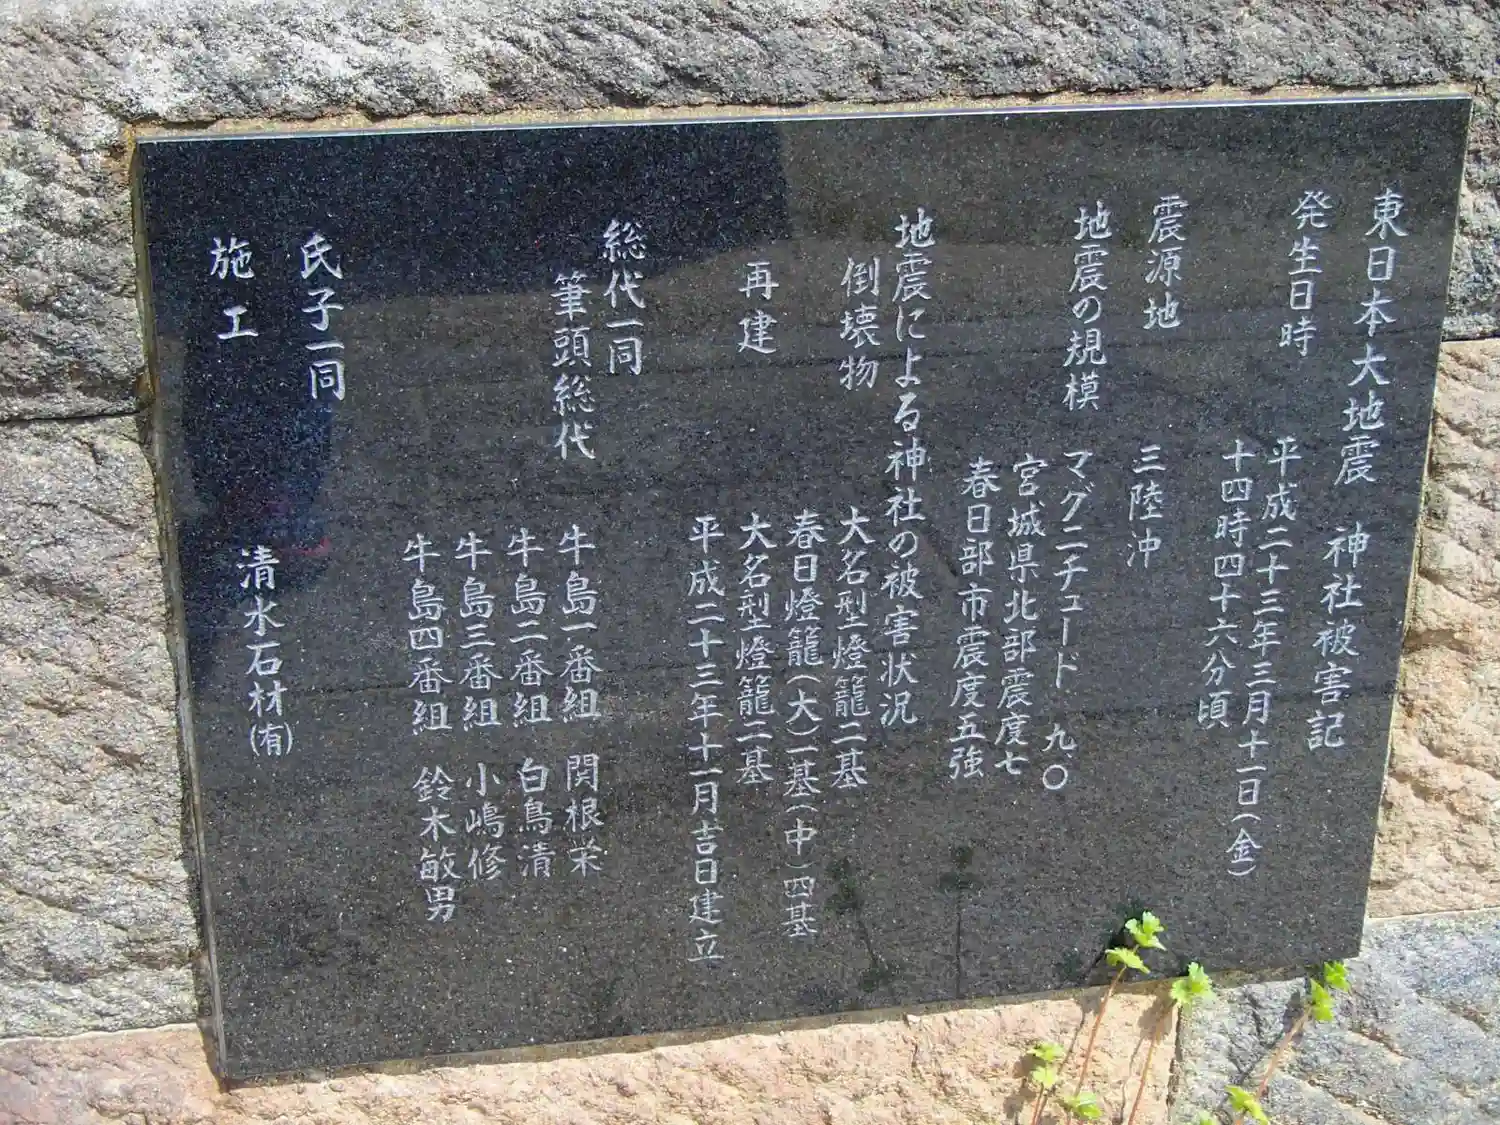 東日本大地震 神社被害記
発生日時 平成二十三年三月十一日(金)
十四時四十六分頃
震源地 三陸沖
地震の規模 マグニチュード 九.〇
宮城県北部震度七
春日部市震度五強
地震による神社の被害状況
倒壊物 大名型燈籠二基
春日燈籠(大)一基(中)四基
再建 大名型燈籠二基
平成二十三年十一月吉日建立
総代一同
筆頭総代 牛島一番組 関根栄
牛島二番組 白鳥清
牛島三番組 小嶋修
牛島四番組 鈴木敏男
氏子一同
施工 清水石材(有)